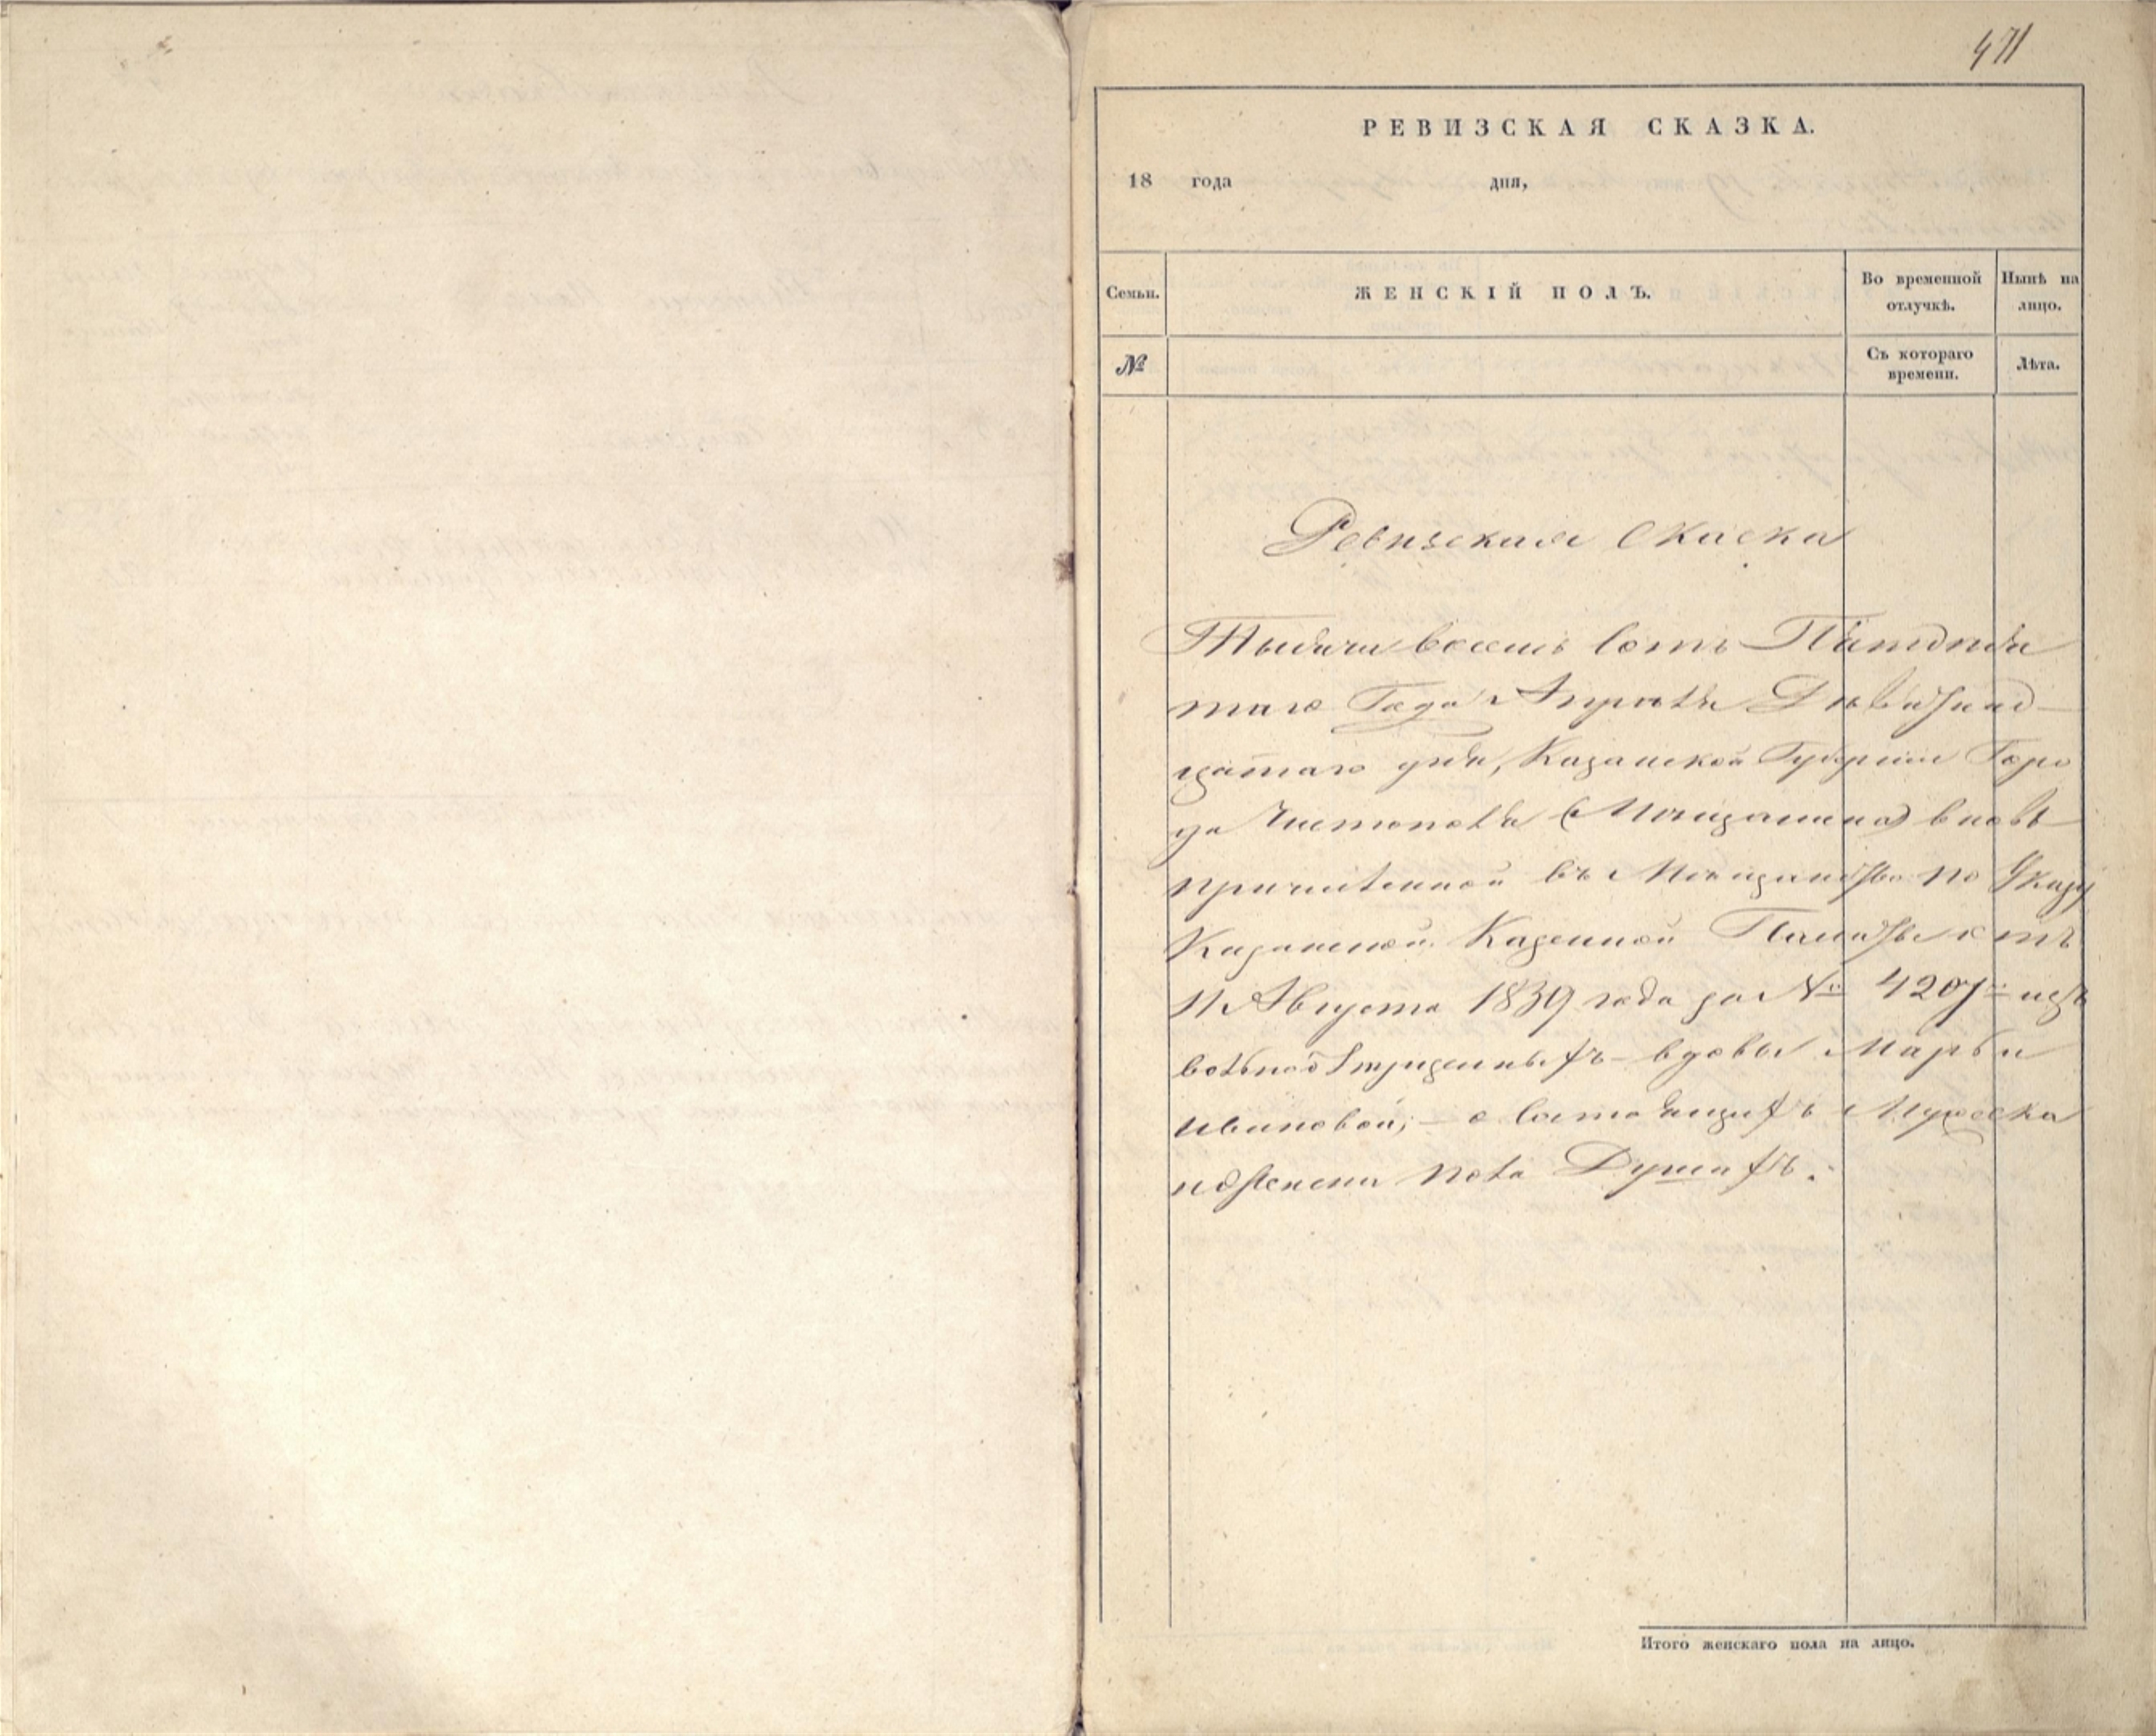 471
РЕВИЗСКАЯ СКАЗКА.
18 года дня,
Семьи. ЖЕНСКІЙ ПОЛЪ. Во временной отлучкѣ. Нынѣ на лицо.
№ Съ котораго времени. Лѣта.
Ревизская Скаска
Тысяча восемь сотъ Пятдеся
таго Года Апреля Девятнад-
цатаго дня, Казанской Губернии Горо
да Чистополя (Мещанина) вновь
причисленной въ Мещанство по Указу
Казанской Казенной Палаты отъ
11 Августа 1839 года за № 4207м изъ
вольноотпущенныхъ вдовы Марьи
Ивановой; о состоящихъ Мужеска
и Женска пола Душахъ.
Итого женскаго пола на лицо.